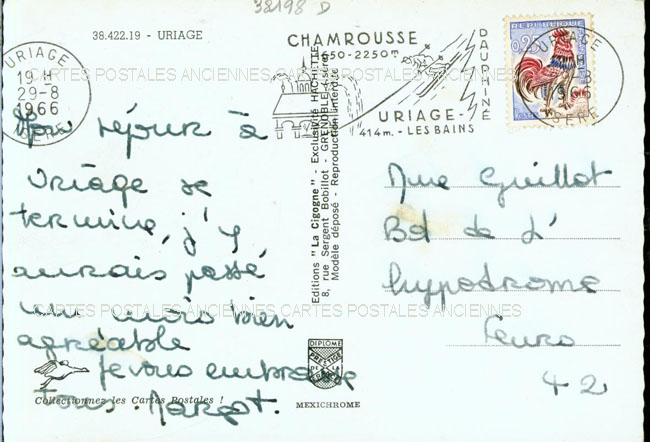 38198 D
38.422.19 - URIAGE
URIAGE
19 H
29-8
1966
ISERE
CHAMROUSSE
1650-2250m
DAUPHINÉ
URIAGE-
414m. - LES BAINS
REPUBLIQUE
0,25
URIAGE
ISERE
CARTES POSTALES ANCIENNES CARTES POSTALES ANCIENNES
Mon séjour à
Uriage se
termine, j'y
aurais passé
un mois bien
agréable
Je vous embrasse
Tous. Margot.
Editions "La Cigogne" - Exclusivité HACHETTE
8, rue Sergent Bobillot - GRENOBLE (Isère)
Modèle déposé - Reproduction interdite
Mme Guillot
Bd de L'
hyppodrome
Feurs
42
CARTES POSTALES ANCIENNES CARTES POSTALES ANCIENNES
DIPLOME
PRESTIGE
DE LA
FRANCE
Collectionnez les Cartes Postales !
MEXICHROME